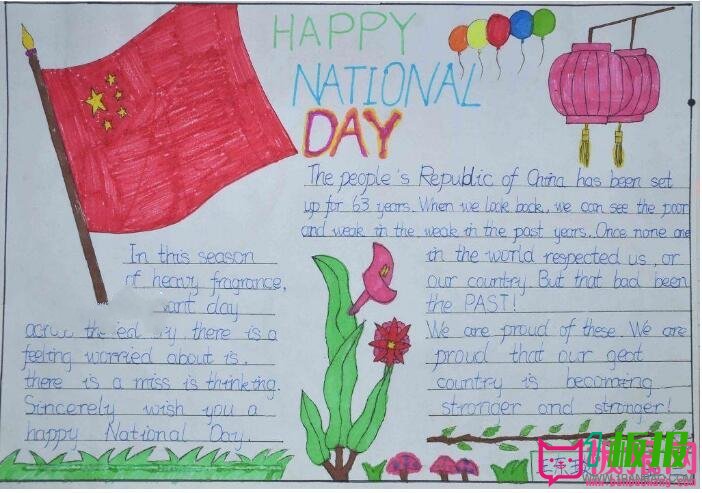 HAPPY
NATIONAL
DAY
The people's Republic of China has been set
up for 63 years. When we look back, we can see the poor
and weak in the weak in the past years. Once none one
in the world respected us, or
our country. But that bad been
the PAST!
We are proud of these. We are
proud that our geat
country is becoming
stronger and stronger!
In this season
of heavy fragrance,
day
there is a
feeling worried about is.
there is a miss is thinking.
Sincerely wish you a
happy National Day.
板报网